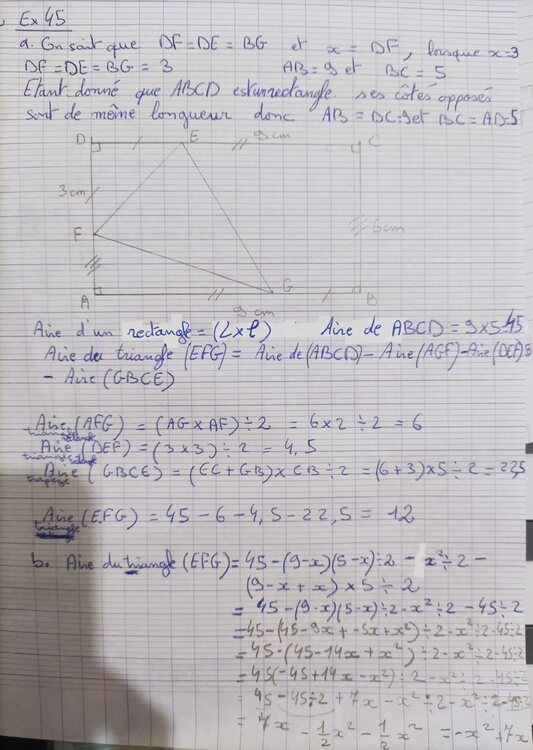 Ex 45
a. On sait que DF = DE = BG et x = DF, lorsque x = 3
DF = DE = BG = 3 AB = 9 et BC = 5
Etant donné que ABCD est un rectangle ses côtés opposés
sont de même longueur donc AB = DC = 9 et BC = AD = 5
D E 9 cm C
3 cm
F 5 cm
A G B
9 cm
Aire d'un rectangle = (L x l) Aire de ABCD = 9 x 5 = 45
Aire du triangle (EFG) = Aire de (ABCD) - Aire (AGF) - Aire (DEF)
- Aire (GBCE)
Aire (AFG) = (AG x AF) ÷ 2 = 6 x 2 ÷ 2 = 6
triangle
Aire (DEF) = (3 x 3) ÷ 2 = 4,5
triangle
Aire (GBCE) = (EC + GB) x CB ÷ 2 = (6 + 3) x 5 ÷ 2 = 22,5
trapèze
Aire (EFG) = 45 - 6 - 4,5 - 22,5 = 12
triangle
b. Aire du triangle (EFG) = 45 - (9 - x)(5 - x) ÷ 2 - x² ÷ 2 -
(9 - x + x) x 5 ÷ 2
= 45 - (9 - x)(5 - x) ÷ 2 - x² ÷ 2 - 45 ÷ 2
= 45 - (45 - 9x + -5x + x²) ÷ 2 - x² ÷ 2 - 45 ÷ 2
= 45 - (45 - 14x + x²) ÷ 2 - x² ÷ 2 - 45 ÷ 2
= 45 (-45 + 14x - x²) ÷ 2 - x² ÷ 2 - 45 ÷ 2
= 45 - 45 ÷ 2 + 7x - x² ÷ 2 - x² ÷ 2 - 45 ÷ 2
= 7x - 1/2 x² - 1/2 x² = -x² + 7x